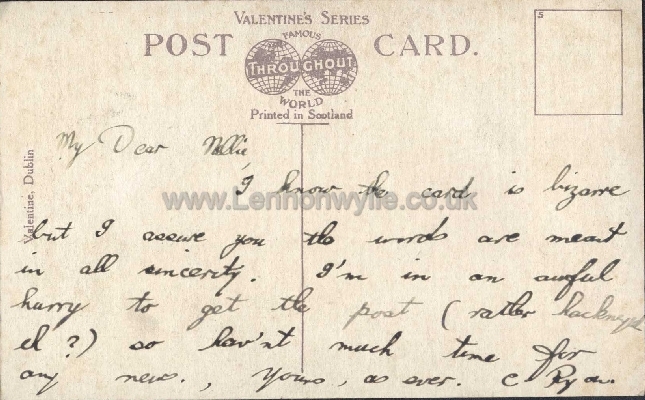 VALENTINE'S SERIES
POST CARD.
FAMOUS
THROUGHOUT
THE
WORLD
Printed in Scotland
S
Valentine, Dublin
www.Lennonwylie.co.uk
My Dear Nellie,
I know the card is bizarre
but I assure you the words are meant
in all sincerity. I'm in an awful
hurry to get the post (rather hackneyed
eh?) so hav'nt much time for
any news., Yours, as ever. C Ryan.